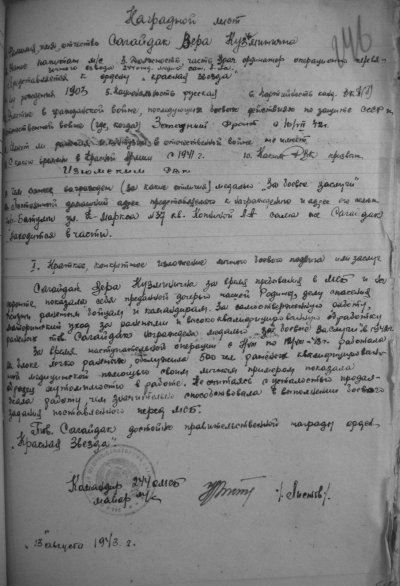 Наградной лист
246
Фамилия, имя, отчество Сагайдак Вера Кузьминична
Звание капитан м/с 3. Должность, часть Врач ординатор операционно перевя-
зочного взвода
представляется к ордену "Красная Звезда"
рождения 1903 5. Национальность русская 6. Партийность канд. ВКП(б)
Участие в гражданской войне, последующих боевых действиях по защите СССР и
отечественной войне (где, когда) Западный Фронт с
Имеет ли ранения и контузии в отечественной войне не имеет
С какого времени в Красной Армии с 1941 г. 10. Каким РВК призван
Изюмским РВК
Чем ранее награжден (за какие отличия) медалью "За боевые заслуги"
Постоянный домашний адрес представляемого к награждению и адрес его семьи
г. Батуми ул. К-Маркса №37 кв. сама же Сагайдак
находится в части.
I. Краткое, конкретное изложение личного боевого подвига или заслуг
Сагайдак Вера Кузьминична за время пребывания в МСБ и на
фронте, показала себя преданной дочерью нашей Родины, делу спасения
жизни раненым бойцам и командирам. За самоотверженную работу,
материнский уход за ранеными и высококвалифицированную обработку
раненых тов. Сагайдак награждена медалью "За боевые заслуги" в
За время наступательной операции с по работала
в блоке легко раненых обслужила 500 чел раненых квалифицирован-
ной медицинской помощью своим личным примером показала
образец в работе. Не считаясь с усталостью продол-
жала работу чем значительно способствовала в выполнении боевого
задания поставленного перед МСБ.
Тов. Сагайдак достойна правительственной награды орден
"Красная Звезда"
Командир 244 ОМСБ
майор м/с /Листов/.
"13" августа 1943 г.